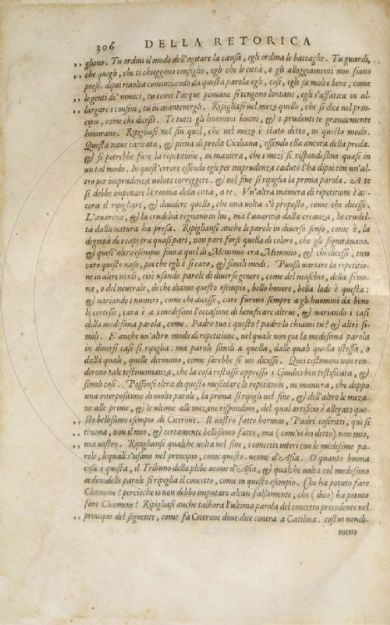 306 DELLA RETORICA
gliono. Tu ordini il modo dell'agitare la causa, egli ordina le battaglie. Tu guardi,
che quegli, che ti chieggono consiglio, egli che le città, o gli alloggiamenti non siano
presi. dipoi rivolta cominciando da questa parola egli, così, egli sa molto bene, come
le genti de' nimici, tu come l'acque piovane si tengono lontane, egli s'affatica in al,
largare i confini, tu in mantenergli. Ripigliasi nel mezo quello, che si dice nel prin,
cipio, come chi dicesse. Te tutti gli huomini buoni, & i prudenti te grandemente
honorano. Ripigliasi nel fin quel, che nel mezo è stato detto, in questo modo.
Questa nave caricata, & piena di preda Ciciliana, essendo ella ancora della preda.
& si potrebbe fare la repetitione, in maniera, che i mezi si rispondessino quasi in
un tal modo. In quest'errore essendo egli per imprudenza caduto l'ha dipoi con un'al,
tro per imprudenza voluto correggere. & nel fine si ripiglia la prima parola. A te
si debbe imputare la rovina della città, a te. Un'altra maniera di repetitione è an,
cora il ripigliare, & dividere quello, che una volta s'è proposto, come chi dicesse.
L'avaritia, & la crudeltà regnano in lui, ma l'avaritia dalla creanza, la crudel,
tà dalla natura ha presa. Ripigliansi anche le parole in diverso senso, come è, la
dignità de i capi era quasi pari, non pari forse quella di coloro, che gli seguitavano.
& quest'altro esempio, sino a quel dì Memmio era Memmio, & chi dicesse, ten
caro questo naso, poi che egli è sì caro, & simili modi. Puossi variare la repetitio,
ne in altri modi, che usando parole di diverso genere, come del maschio, della femi,
na, o del neutrale, di che diamo questo esempio, bello honore, bella lode è questa:
& variando i numeri, come chi dicesse, care furono sempre a gli huomini da bene
le cortesie, cara è a i medesimi l'occasione di beneficare altrui, & variando i casi
della medesima parola, come. Padre tuo è questo? padre lo chiami tu? & altri si,
mili. È anche un'altro modo di repetitione, nel quale non già la medesima parola
in diversi casi si ripiglia: ma parole simili a quella, dalle quali quella istessa, o
dalla quale, quelle derivano, come sarebbe se un dicesse. Quei testimoni non ren,
derono tale testimonianza, che la cosa restasse appresso i Giudici ben testificata, &
simili cose. Possonsi oltra di questo mescolare le repetitioni, in maniera, che doppo
una interpositione di molte parole, la prima si ripigli nel fine, & dell'altre le meza,
ne alle prime, & le ultime alle mezane rispondino, del qual artificio è allegato que,
sto bellissimo esempio di Cicerone. Il vostro fatto hormai, Padri coscritti, qui si
truova, non il mio, & certamente bellissimo fatto, ma (com'io ho detto) non mio,
ma vostro. Ripigliansi qualche volta nel fine, i concetti interi con le medesime pa,
role, le quali s'usano nel principio, come questo. venne d'Asia. O quanto buona
cosa è questa, il Tribuno della plebe venne d'Asia, & qualche volta col medesimo
ordine delle parole si ripiglia il concetto, come in questo esempio. Che ha potuto fare
Cleomene? percioche io non debbo imputare alcun falsamente, che (dico) ha potuto
fare Cleomene? Ripigliasi anche talhora l'ultima parola del concetto precedente nel
principio del seguente, come fa Cicerone dove dice contra a Catilina. costui nondi,
meno